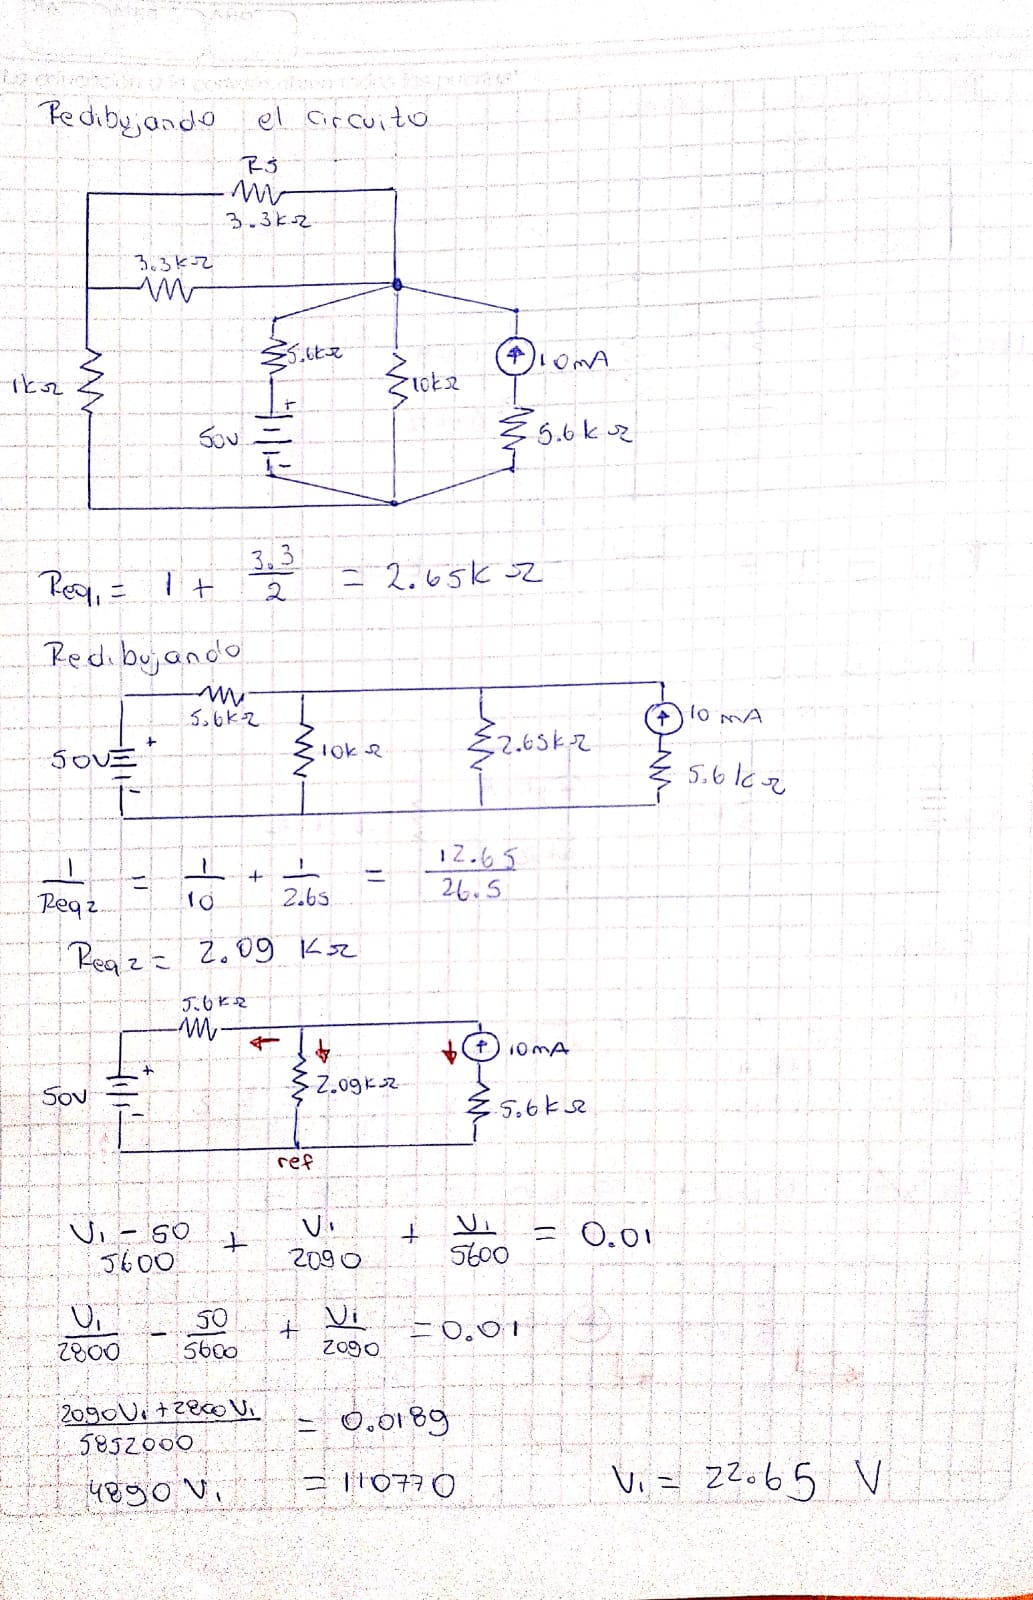 Redibujando el circuito
R5
3.3kΩ
3.3kΩ
5.6kΩ
10mA
1kΩ
10kΩ
+
50v
5.6kΩ
-
Req1 = 1 + 3.3/2 = 2.65kΩ
Redibujando
5.6kΩ
10mA
50V
+
10kΩ
2.65kΩ
5.6kΩ
-
1/Req2 = 1/10 + 1/2.65 = 12.65/26.5
Req2 = 2.09 KΩ
5.6kΩ
10mA
+
50V
2.09kΩ
5.6kΩ
-
ref
V1 - 50/5600 + V1/2090 + V1/5600 = 0.01
V1/2800 - 50/5600 + V1/2090 = 0.01
2090V1+2800V1/5852000 = 0.0189
4890V1 = 110770 V1 = 22.65 V